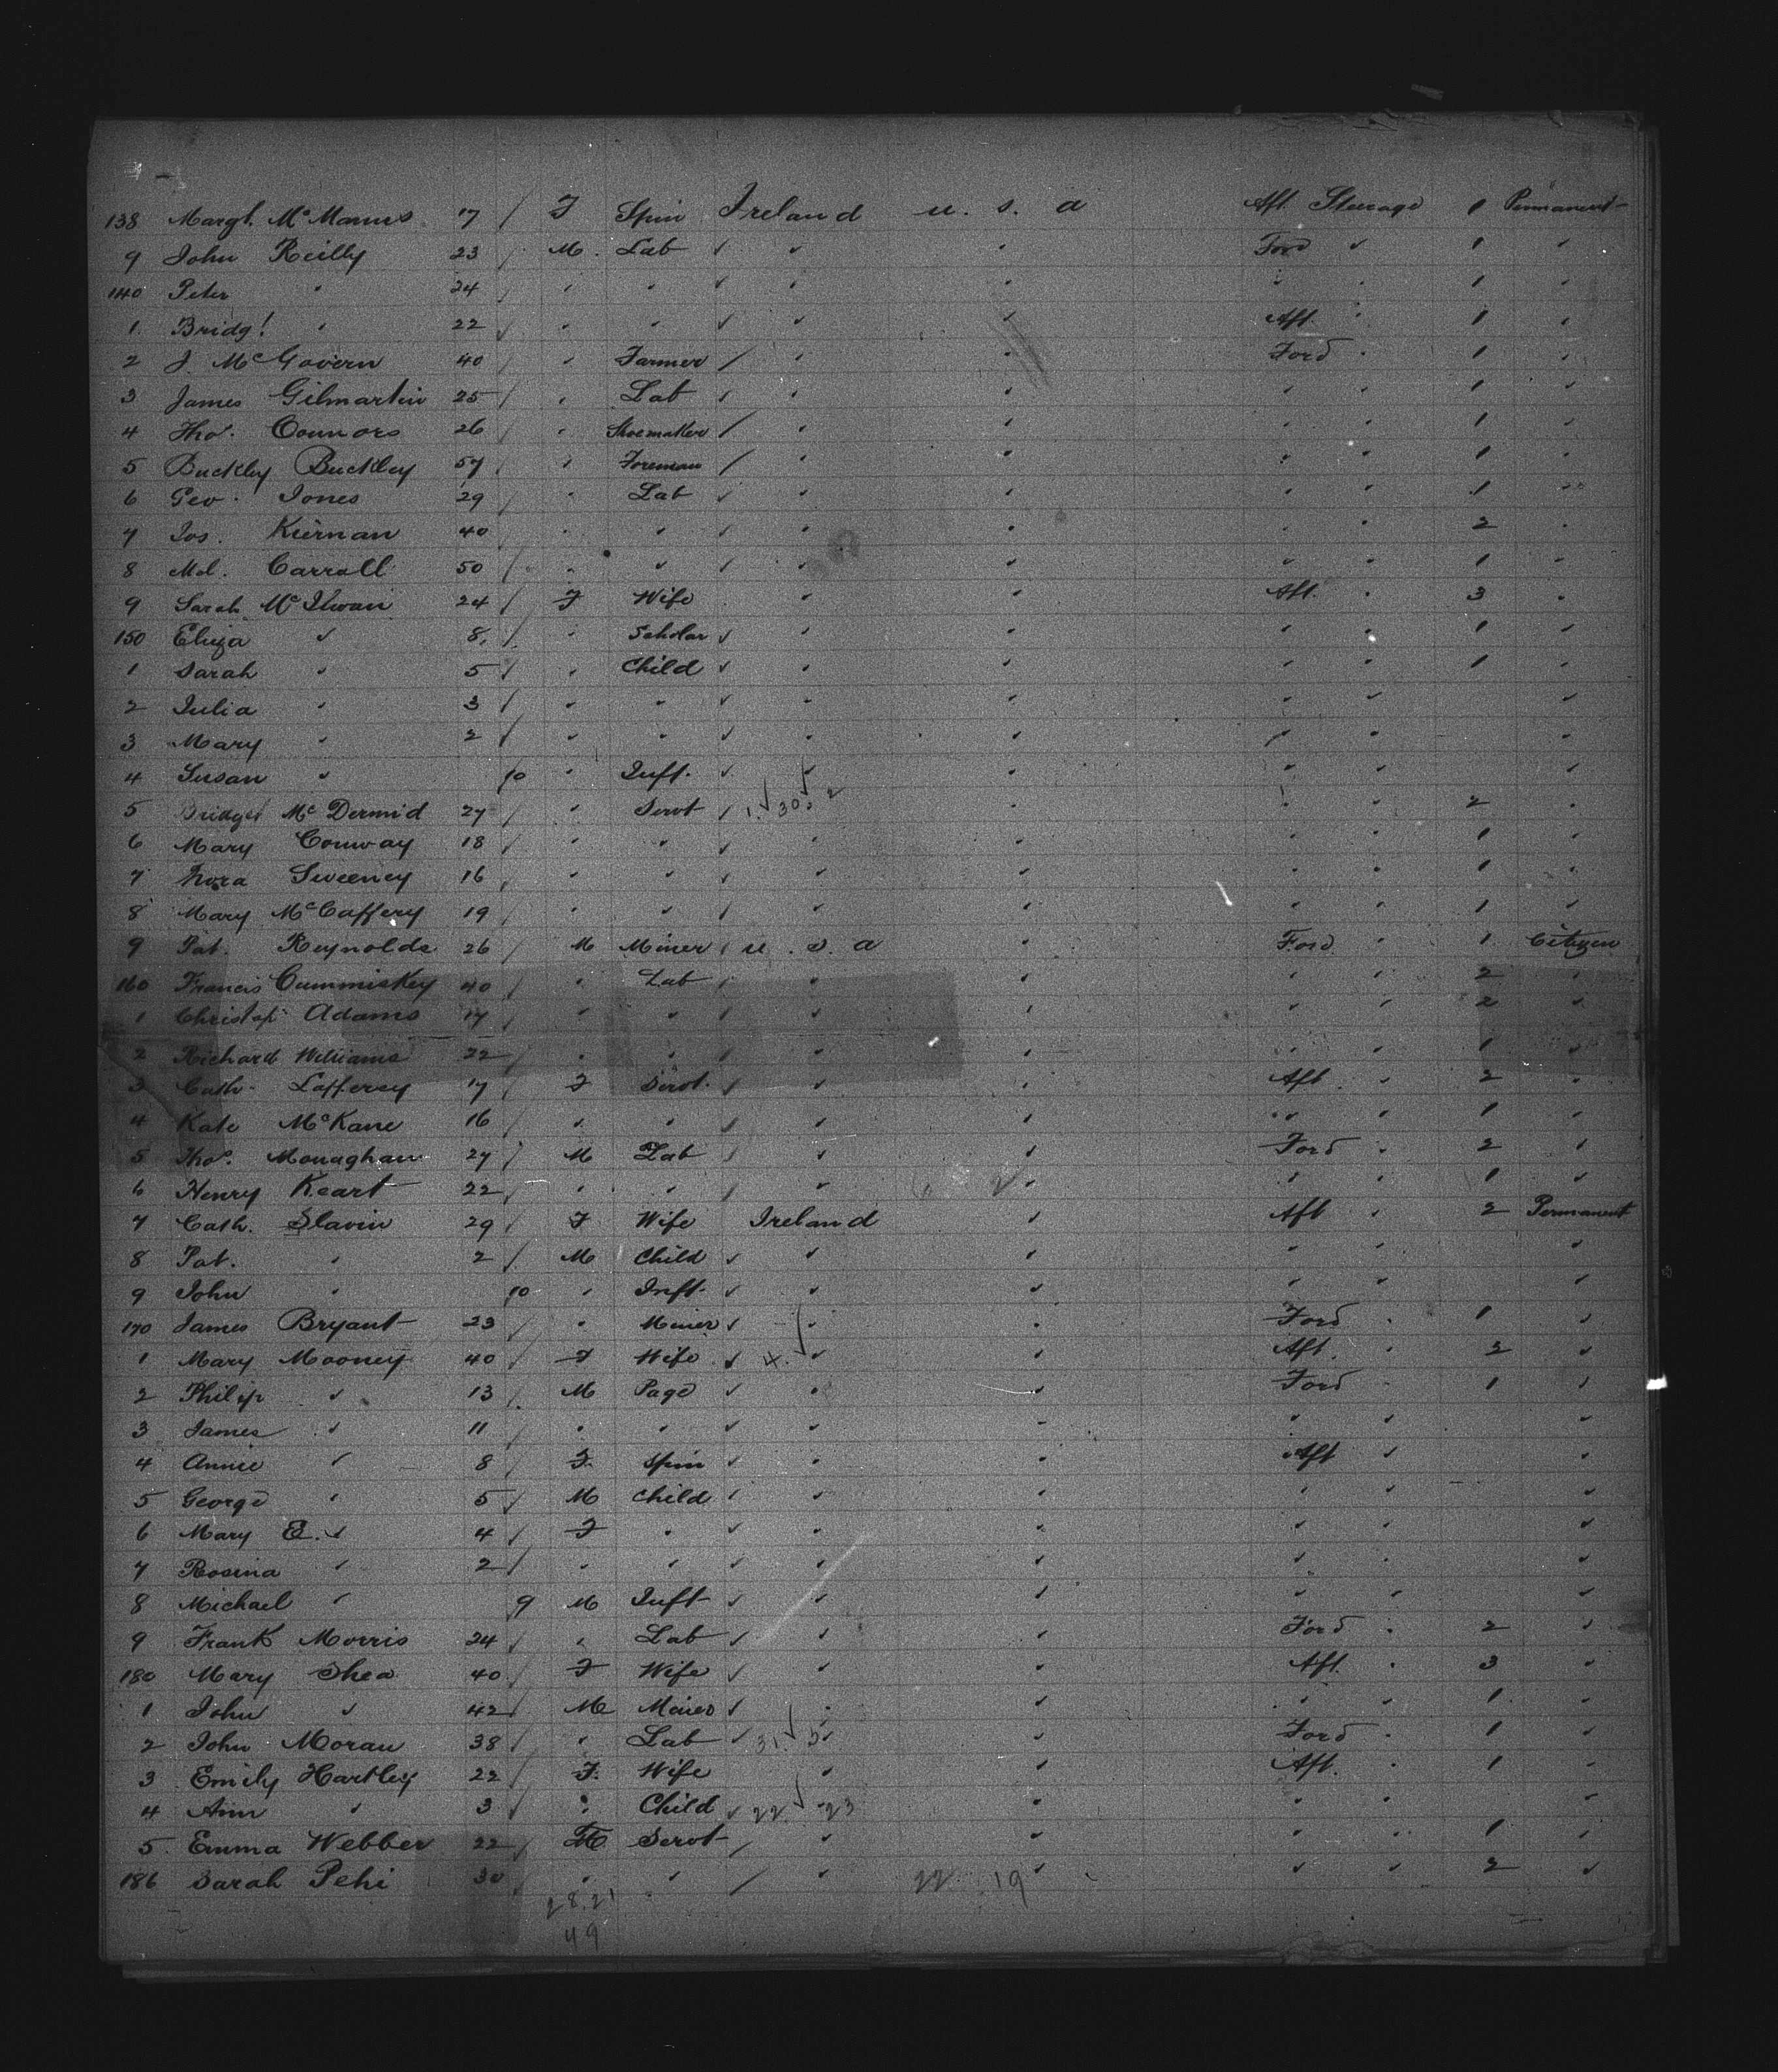 138 Margt. McManus 17 / F Spin Ireland U. S. A Aft. Steerage 1 Permanent
9 John Reilly 23 / M. Lab " " " Ford " 1 "
140 Peter " 24 / " " " " " " " 1 "
1 Bridgt " 22 / " " " " " Aft. " 1 "
2 J. McGovern 40 / " Farmer / " " Ford " 1 "
3 James Gilmartin 25 / " Lab " " " " " 1 "
4 Thos. Connors 26 / " Shoemaker / " " " " 1 "
5 Buckley Buckley 57 / " Foreman / " " " " 1 "
6 Geo. Jones 29 / " Lab " " " " " 1 "
7 Jos. Kiernan 40 / " " " " " " " 2 "
8 Ml. Carroll 50 / " " " " " " " 1 "
9 Sarah McIlwain 24 / F Wife " " Aft. " 3 "
150 Eliza " 8 / " Scholar " " " " " 1 "
1 Sarah " 5 / " Child " " " " " 1 "
2 Julia " 3 / " " " " " " " "
3 Mary " 2 / " " " " " " " "
4 Susan " 10 " Inft. " " " " " "
5 Bridget McDermid 27 / " Servt / 1. 30. 2 " " " 2 "
6 Mary Conway 18 / " " " " " " " 1 "
7 Nora Sweeney 16 / " " " " " " " 1 "
8 Mary McCaffery 19 / " " / " " " " 1 "
9 Pat. Reynolds 26 / M Miner / U. S. A " Ford " 1 Citizen
160 Francis Cummiskey 40 / " Lab / " " " 2 "
1 Christop Adams 17 / " " " " " " 2 "
2 Richard Williams 22 / " " / " " " " 1 "
3 Cath. Lafferey 17 / F Servt. / " " Aft " 2 "
4 Kate McKane 16 " " / " " " " 1 "
5 Thos. Monaghan 27 / M Lab / " " Ford " 2 "
6 Henry Keart 22 / " " / " " " " 1 "
7 Cath. Slavin 29 / F Wife Ireland " Aft " 2 Permanent
8 Pat. " 2 / M Child " " " " " "
9 John " 10 " Inft. " " " " " "
170 James Bryant 23 / " Miner " " " Ford " 1 "
1 Mary Mooney 40 / F Wife " 4. " " Aft. " 2 "
2 Philip " 13 / M Page " " " Ford " 1 "
3 James " 11 / " " " " " " " "
4 Annie " 8 / F. Spin " " " Aft " "
5 George " 5 / M Child " " " " " "
6 Mary E. " 4 / F " " " " " " "
7 Rosina " 2 / " " " " " " " "
8 Michael " 9 M Inft " " " " " "
9 Frank Morris 24 / " Lab / " " Ford " 2 "
180 Mary Shea 40 / F Wife / " " Aft. " 3 "
1 John " 42 / M Miner " " " " " 1 "
2 John Moran 38 / " Lab " 31. 5 " Ford " 1 "
3 Emily Hartley 22 / F. Wife " " Aft. " 1 "
4 Ann " 3 / " Child / 22 23 " " " "
5 Emma Webber 22 / F Servt / " " " " 1 "
186 Sarah Pehi 30 / " " / " 22 19 " " " 2 "
28.21
49